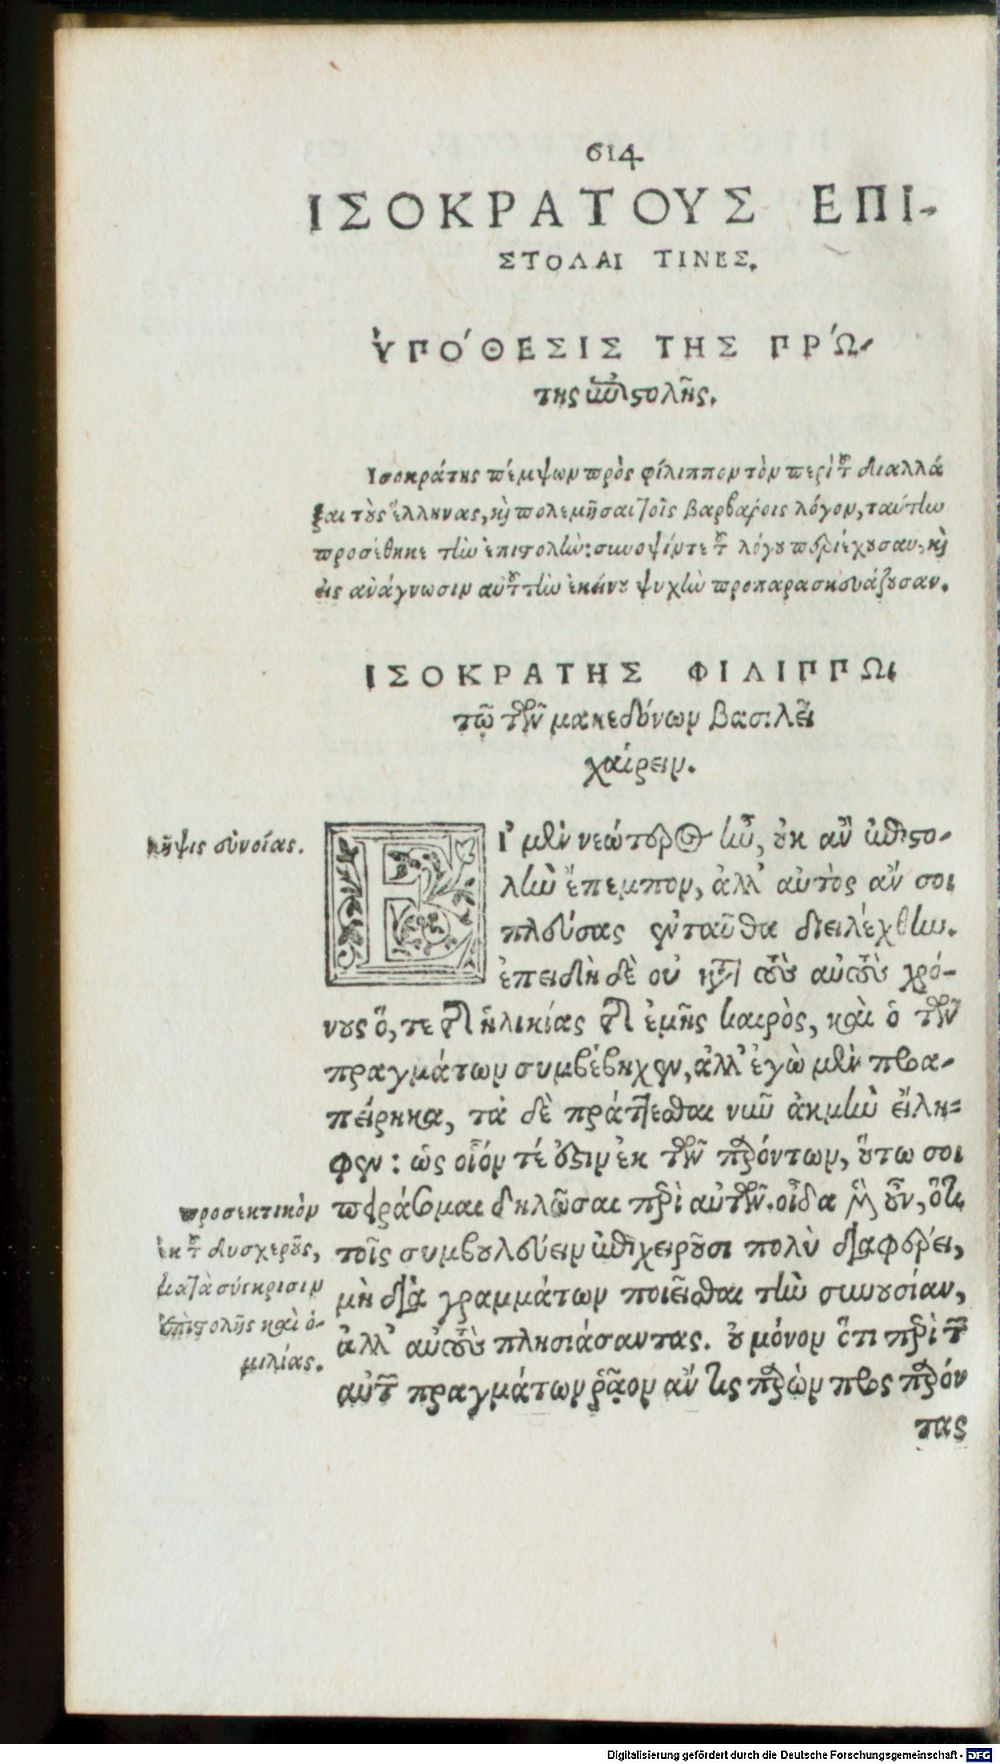 614
ΙΣΟΚΡΑΤΟΥΣ ΕΠΙ-
ΣΤΟΛΑΙ ΤΙΝΕΣ.
ὙΠΟ´ΘΕΣΙΣ ΤΗΣ ΠΡΏ-
της ἐπιϛολῆς.
Ισοκράτης πέμψων πρὸς φίλιππον τὸν περὶ τοῦ διαλλά
ξαι τοὺς ἕλληνας, καὶ πολεμῆσαι τοῖς βαρβάροις λόγον, ταύτην
προσέθηκε τὴν ἐπιστολὴν: σύνοψίν τε τοῦ λόγου περιέχουσαν, καὶ
εἰς ἀνάγνωσιν αὐτοῦ τὴν ἐκείνου ψυχὴν προπαρασκευάζουσαν.
ΙΣΟΚΡΑΤΗΣ ΦΙΛΙΠΠΩι
τῷ τῶν μακεδόνων βασιλεῖ
χαίρειν.
λῆψις εὐνοίας.
ΕΙ᾽ μὲν νεώτερος ἦν, οὐκ ἂν ἐπιϛο-
λὴν ἔπεμπον, ἀλλ᾽ αὐτὸς ἄν σοι
πλεύσας ἐνταῦθα διειλέχθην.
ἐπειδὴ δὲ οὐ κατὰ τοὺς αὐτοὺς χρό-
νους ὅ, τε τῆς ἡλικίας τῆς ἐμῆς καιρὸς, καὶ ὁ τῶν
πραγμάτων συμβέβηκεν, ἀλλ᾽ ἐγὼ μὲν προα-
πείρηκα, τὰ δὲ πράττεσθαι νῦν ἀκμὴν εἴλη=
φεν: ὡς οἷόν τέ ἐστιν ἐκ τῶν παρόντων, οὕτω σοι
προσεκτικὸν
ἐκ τοῦ δυσχεροῦς,
κατὰ σύγκρισιν
ἐπιστολῆς καὶ ὁ-
μιλίας.
πειράσομαι δηλῶσαι περὶ αὐτῶν. οἶδα μὲν οὖν, ὅτι
τοῖς συμβουλεύειν ἐπιχειροῦσι πολὺ διαφέρει,
μὴ διὰ γραμμάτων ποιεῖσθαι τὴν συνουσίαν,
ἀλλ᾽ αὐτοὺς πλησιάσαντας. οὐ μόνον ὅτι περὶ τῶν
αὐτῶν πραγμάτων ῥᾷον ἄν τις παρὼν πρὸς παρόν
τας
Digitalisierung gefördert durch die Deutsche Forschungsgemeinschaft - DFG